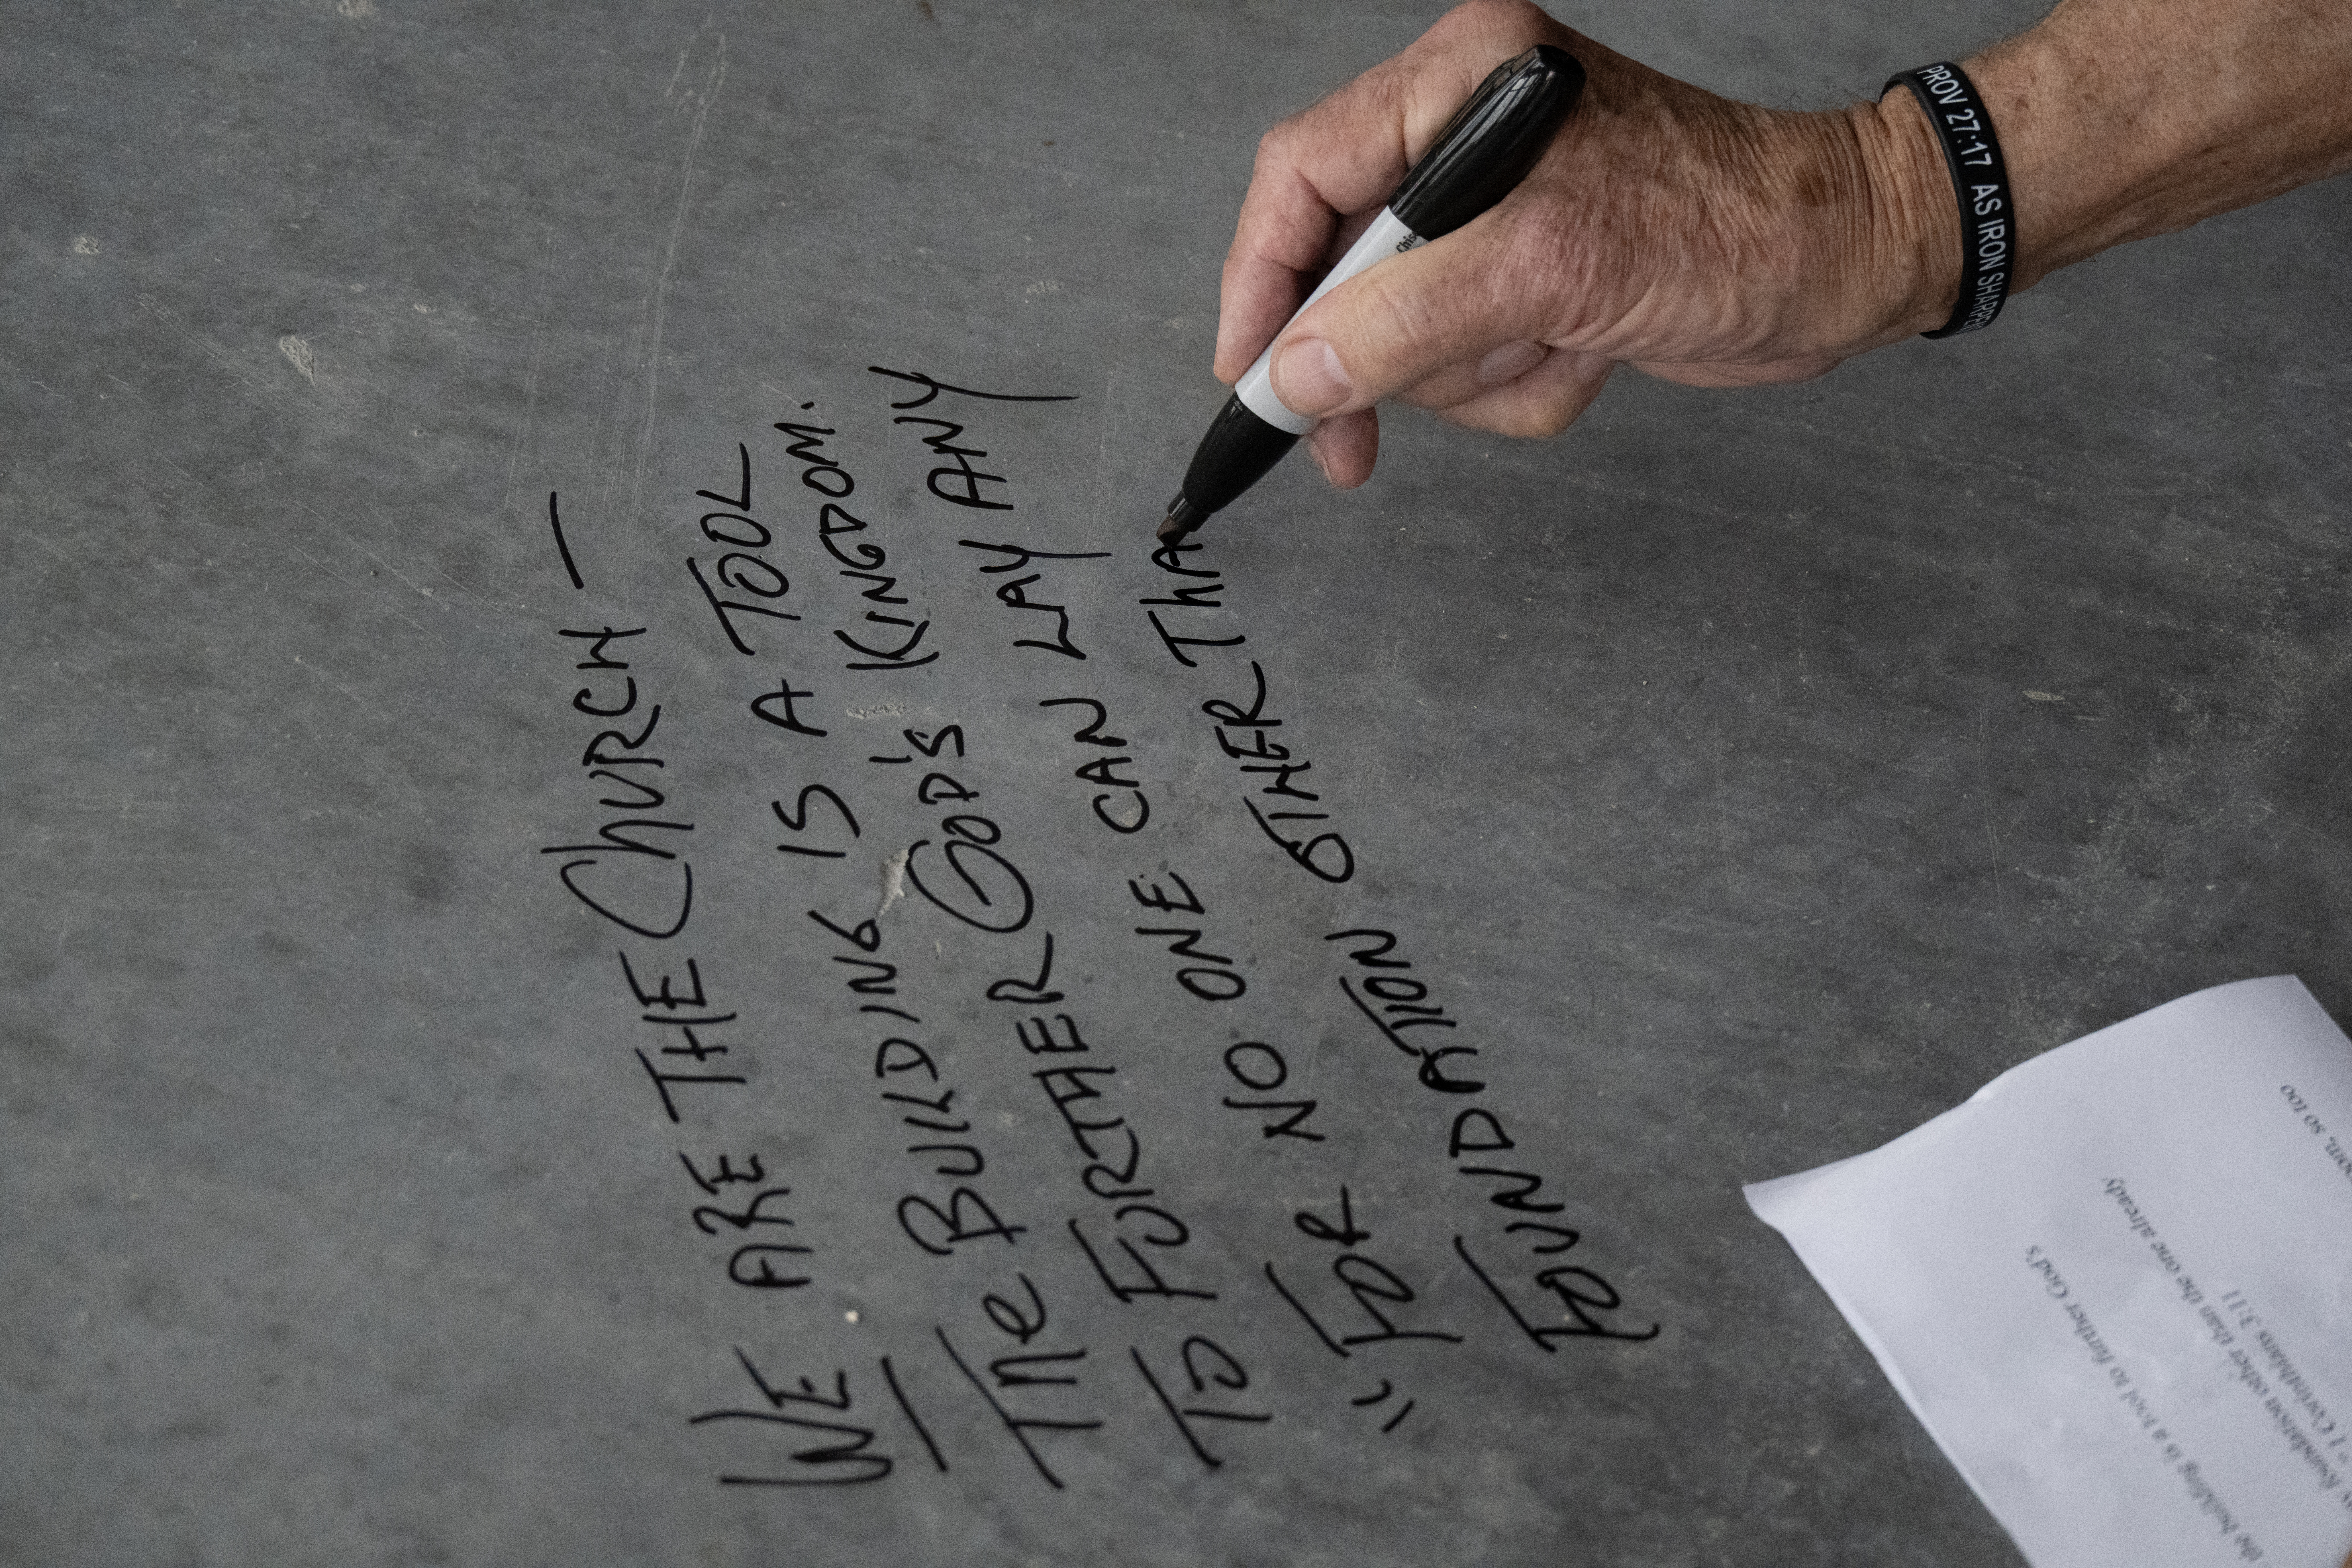 WE ARE THE CHURCH —
— The BUILDING IS A TOOL
TO FURTHER GOD'S KINGDOM.
"FOR NO ONE CAN LAY ANY
FOUNDATION OTHER THA
PROV 27:17 AS IRON SHARPE
Chis
the building is a tool to further God's
foundation other than the one already
1 Corinthians 3:11
so too